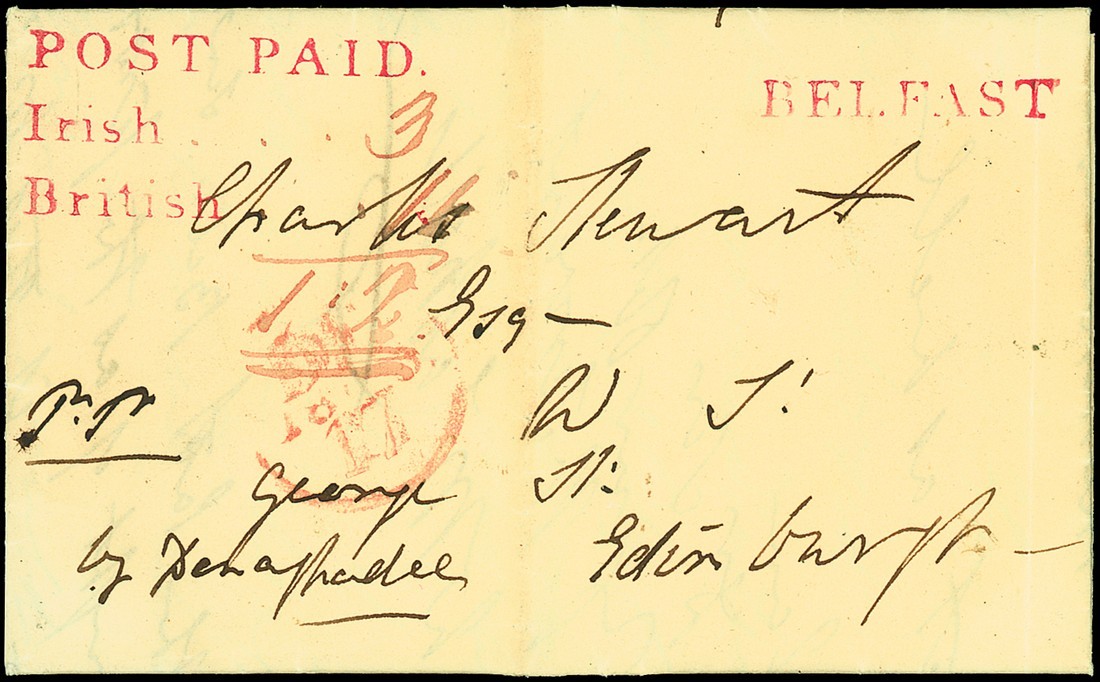 POST PAID.
BELFAST
Irish . . . . . 3
British 11
Charles Stewart
1:2
Esq —
W S!
17
George St:
by Donaghadee
Edinburgh —